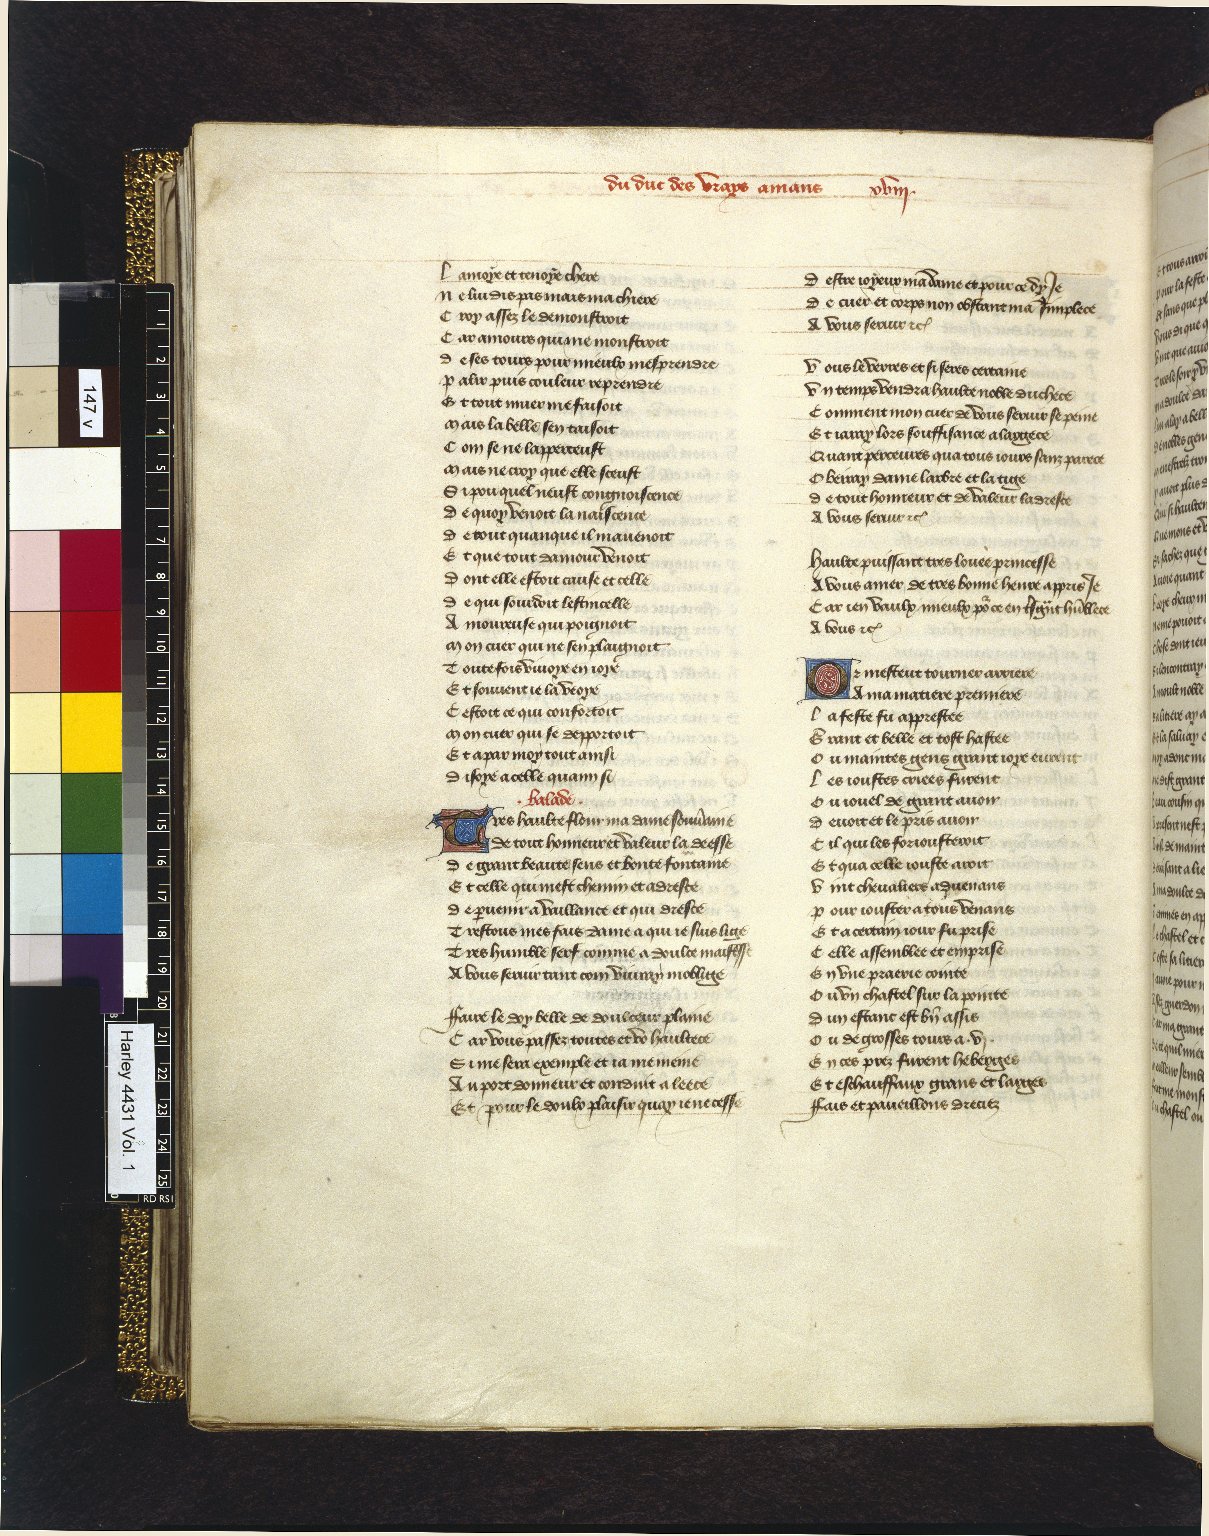 du duc des vrays amans xviii.
L amoye et tenoye chere
N e lui dis pas mais ma chiere
C roy assez le demonstroit
C ar amours qui me monstroit
D e ses tours pour mieulx mesprendre
P alir puis couleur reprendre
E t tout muer me faisoit
M ais la belle sen taisoit
C om se ne lapperceust
M ais ne croy que elle sceust
S i pou quel neust congnoiscence
D e quoy venoit la naiscence
D e tout quanque il mavenoit
E t que tout damour venoit
D ont elle estoit cause et celle
D e qui sourdoit lestincelle
A moureuse qui poignoit
M on cuer qui ne sen plaignoit
T outefois vivoye en ioye
E t souvent ie la veoye
C estoit ce qui confortoit
M on cuer qui se depportoit
E t a par moy tout ainsi
D isoye a celle quaim si
. balade .
T res haulte flour ma dame souveraine
De tout honneur et valeur la deesse
D e grant beaute sens et bonte fontaine
E t celle qui mest chemin et adresce
D e pvenir a vaillance et qui dresce
T restous mes fais dame a qui ie suis lige
T res humble serf comme a doulce maistresse
A vous servir tant com vivray moblige
Faire le doy belle de doulceur plaine
C ar vous passez toutes et vo haultece
S i me sera exemple et ia me meine
A u port donneur et conduit a leece
Et pour le doulx plaisir quay ie ne cesse
D estre ioyeux ma dame et pour ce dy Je
D e cuer et corps non obstant ma simplece
A vous servir etc
V ous le verres et si seres certaine
V n temps vendra haulte noble duchece
C omment mon cuer de vous servir se peine
E t iaray lors souffisance a largece
Quant percevres qua tous iours sanz parece
O beiray dame larbre et la tige
D e tout honneur et de valeur ladresce
A vous servir etc
Haulte puissant tres louee princesse
A vous amer de tres bonne heure appris Je
C ar ien vaulx mieulx
A vous etc
Or mesteut tourner arriere
A ma matiere premiere
L a feste fu apprestee
G rant et belle et tost hastee
O u maintes gens grant ioye eurent
L es ioustes criees furent
O u iouel de grant avoir
D evoit et le pris avoir
C il qui les foriousteroit
E t qua celle iouste aroit
V int chevaliers advenans
P our iouster a tous venans
E t a certain iour fu prise
C elle assemblee et emprise
E n une praerie cointe
O u vn chastel sur la pointe
D un estanc est bn assis
O u de grosses tours a .vi.
E n ces prez furent heberges
E t eschauffaux grans et larges
Fais et paveillons dreciez
147 v
Harley 4431 Vol. 1